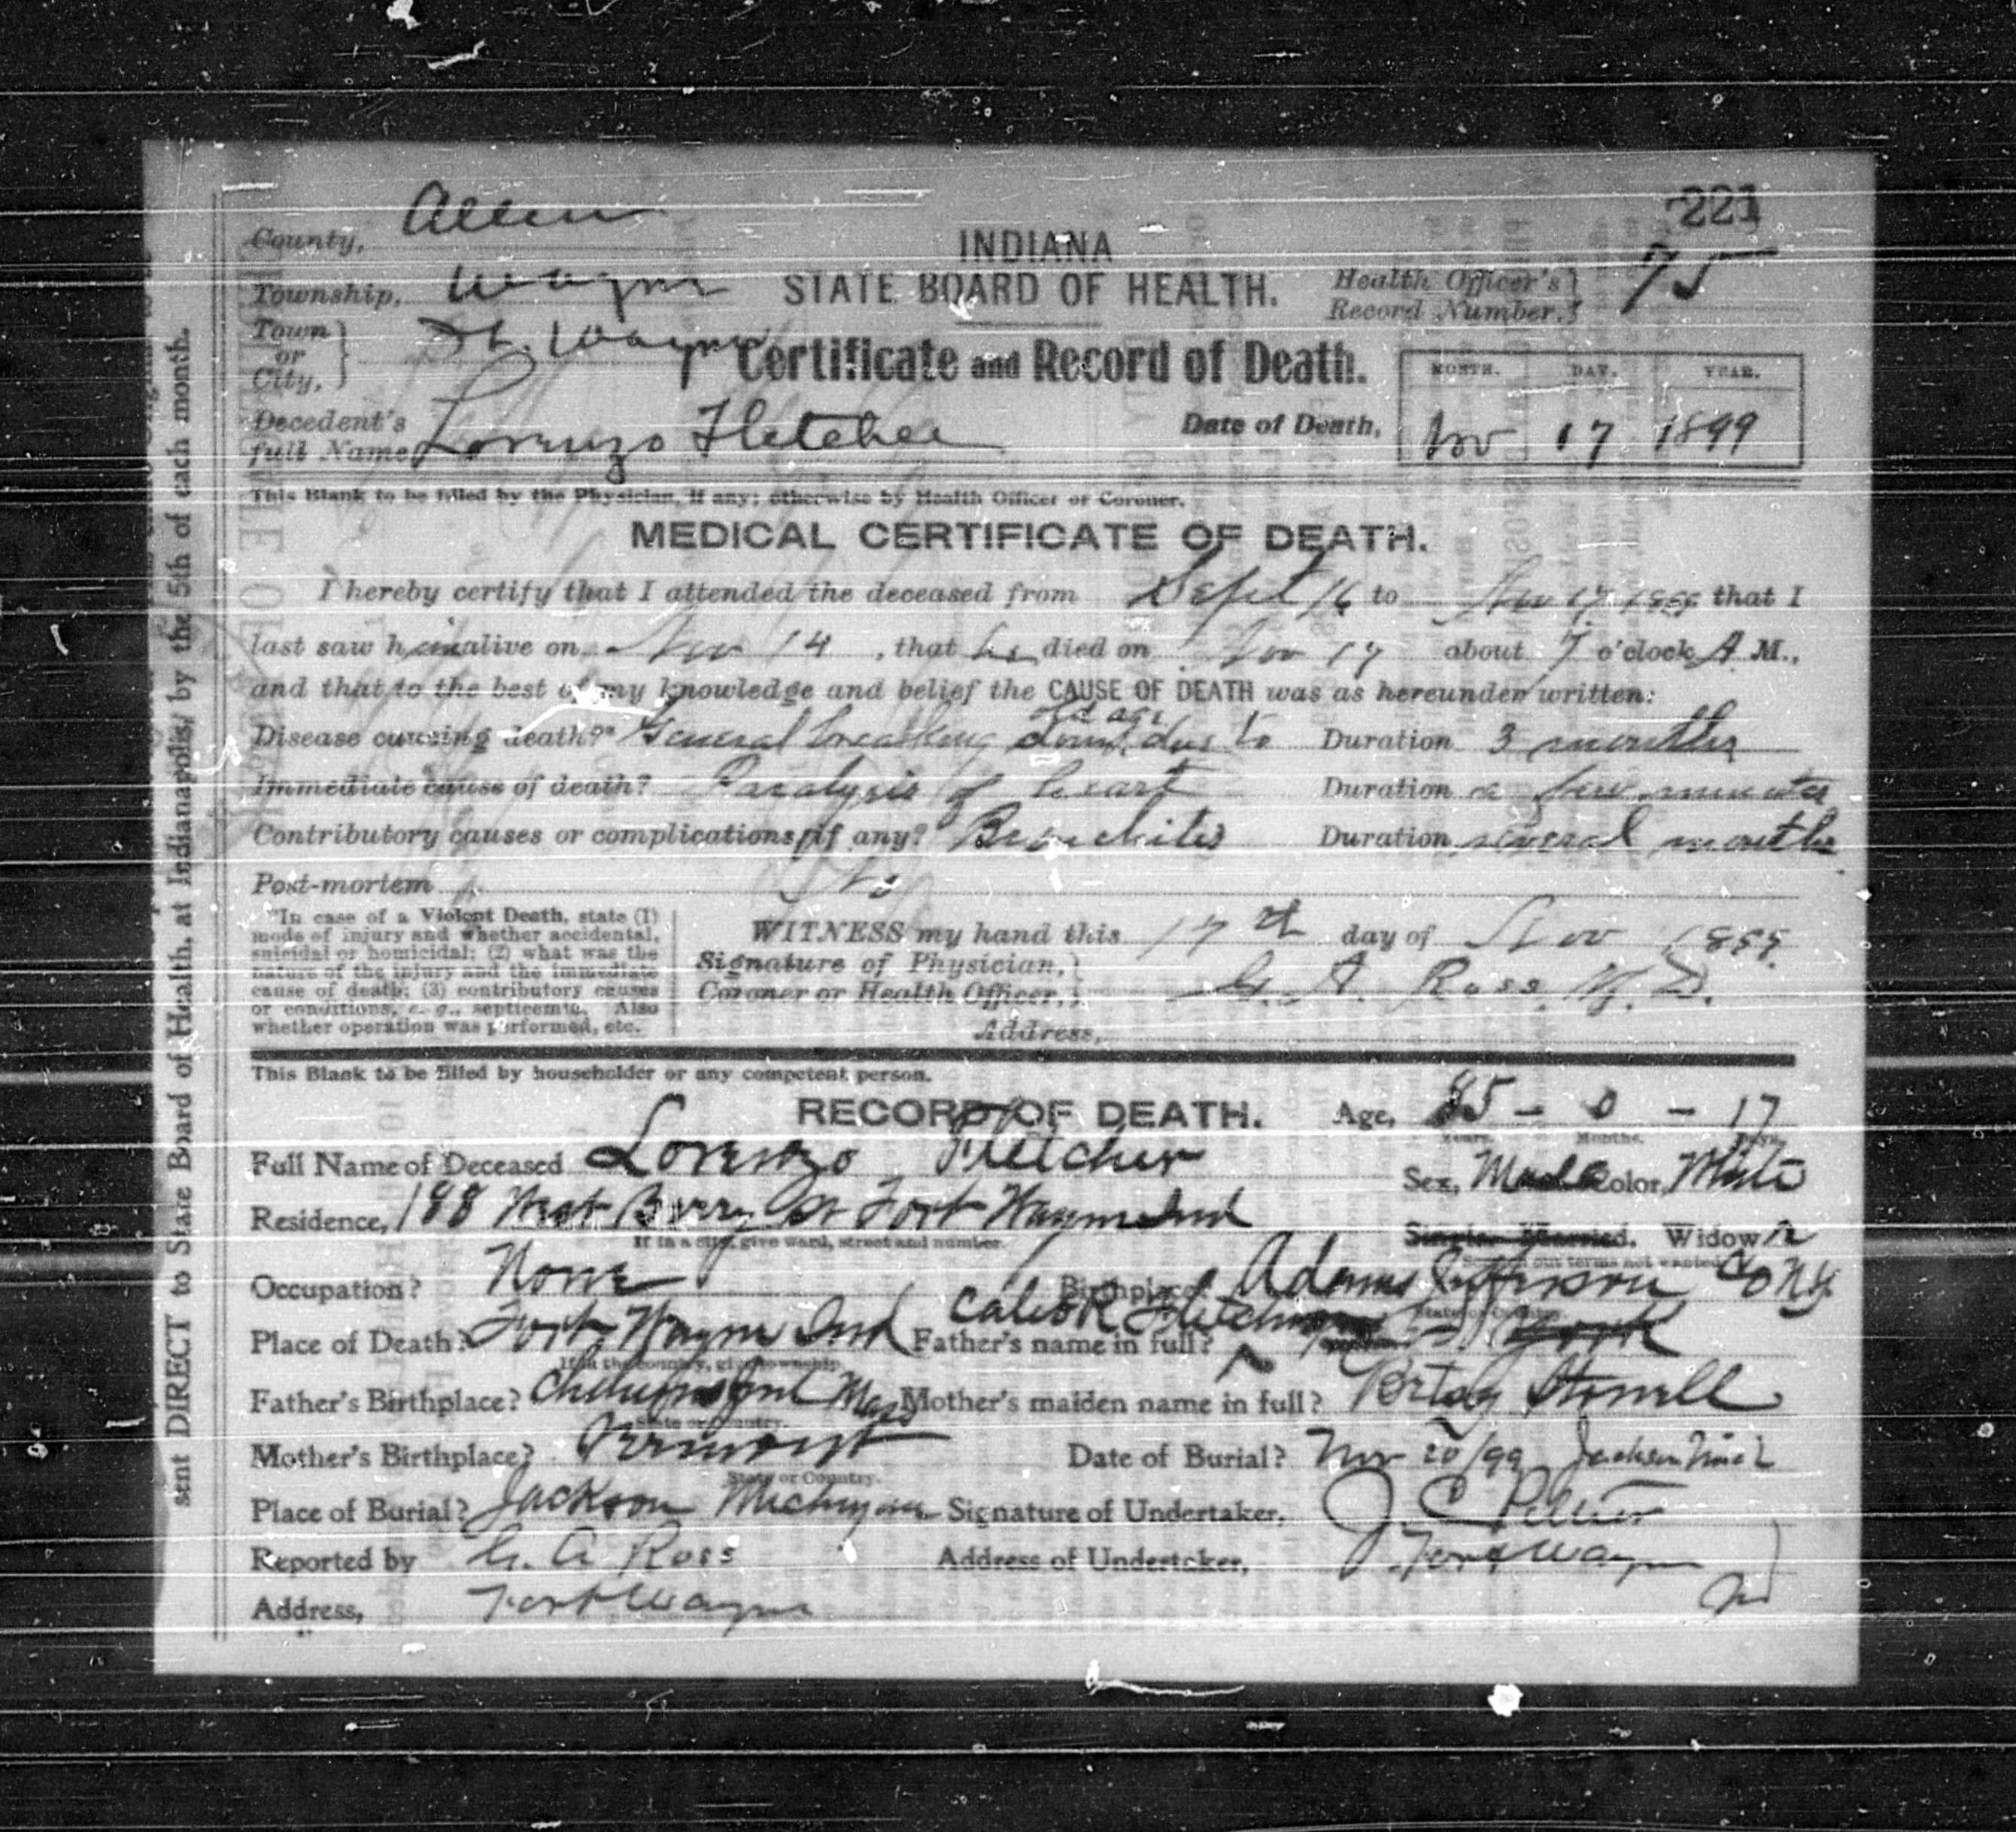 221
County, Allen
INDIANA
Township, Wayne
STATE BOARD OF HEALTH.
Health Officer's Record Number. 75
Town or City, Ft. Wayne
Certificate and Record of Death.
MONTH. DAY. YEAR.
Decedent's full Name Lorenzo Fletcher
Date of Death, Nov 17 1899
This Blank to be filled by the Physician, if any; otherwise by Health Officer or Coroner.
MEDICAL CERTIFICATE OF DEATH.
I hereby certify that I attended the deceased from Sept 16 to Nov 17, 1899 that I
last saw him alive on Nov 14, that he died on Nov 17 about 7 o'clock A M.,
and that to the best of my knowledge and belief the CAUSE OF DEATH was as hereunder written:
Disease causing death?* General breaking down due to old age Duration 3 months
Immediate cause of death? Paralysis of heart Duration a few minutes
Contributory causes or complications, if any? Bronchitis Duration several months
Post-mortem No
*In case of a Violent Death, state (1)
mode of injury and whether accidental,
suicidal or homicidal; (2) what was the
nature of the injury and the immediate
cause of death; (3) contributory causes
or conditions, e. g., septicemia. Also
whether operation was performed, etc.
WITNESS my hand this 17th day of Nov 1899.
Signature of Physician, Coroner or Health Officer, G. A. Ross M. D.
Address,
This Blank to be filled by householder or any competent person.
RECORD OF DEATH. Age, 85 - 0 - 17
Years. Months. Days.
Full Name of Deceased Lorenzo Fletcher
Sex, Male Color, White
Residence, 188 West Berry St Fort Wayne Ind
If in a city, give ward, street and number.
Single. Married. Widowr
Strike out terms not wanted.
Occupation? None Birthplace? Adams Jefferson Co N.Y.
State or Country.
Place of Death? Fort Wayne Ind Father's name in full? Caleb R Fletcher
If in the country, give township.
Father's Birthplace? Chelmsford Mass Mother's maiden name in full? Betsy Stowell
State or Country.
Mother's Birthplace? Vermont Date of Burial? Nov 20/99 Jackson Mich
State or Country.
Place of Burial? Jackson Michigan Signature of Undertaker, J. C. Peltier
Reported by G. A Ross Address of Undertaker, Fort Wayne
Address, Fort Wayne
sent DIRECT to State Board of Health, at Indianapolis, by the 5th of each month.